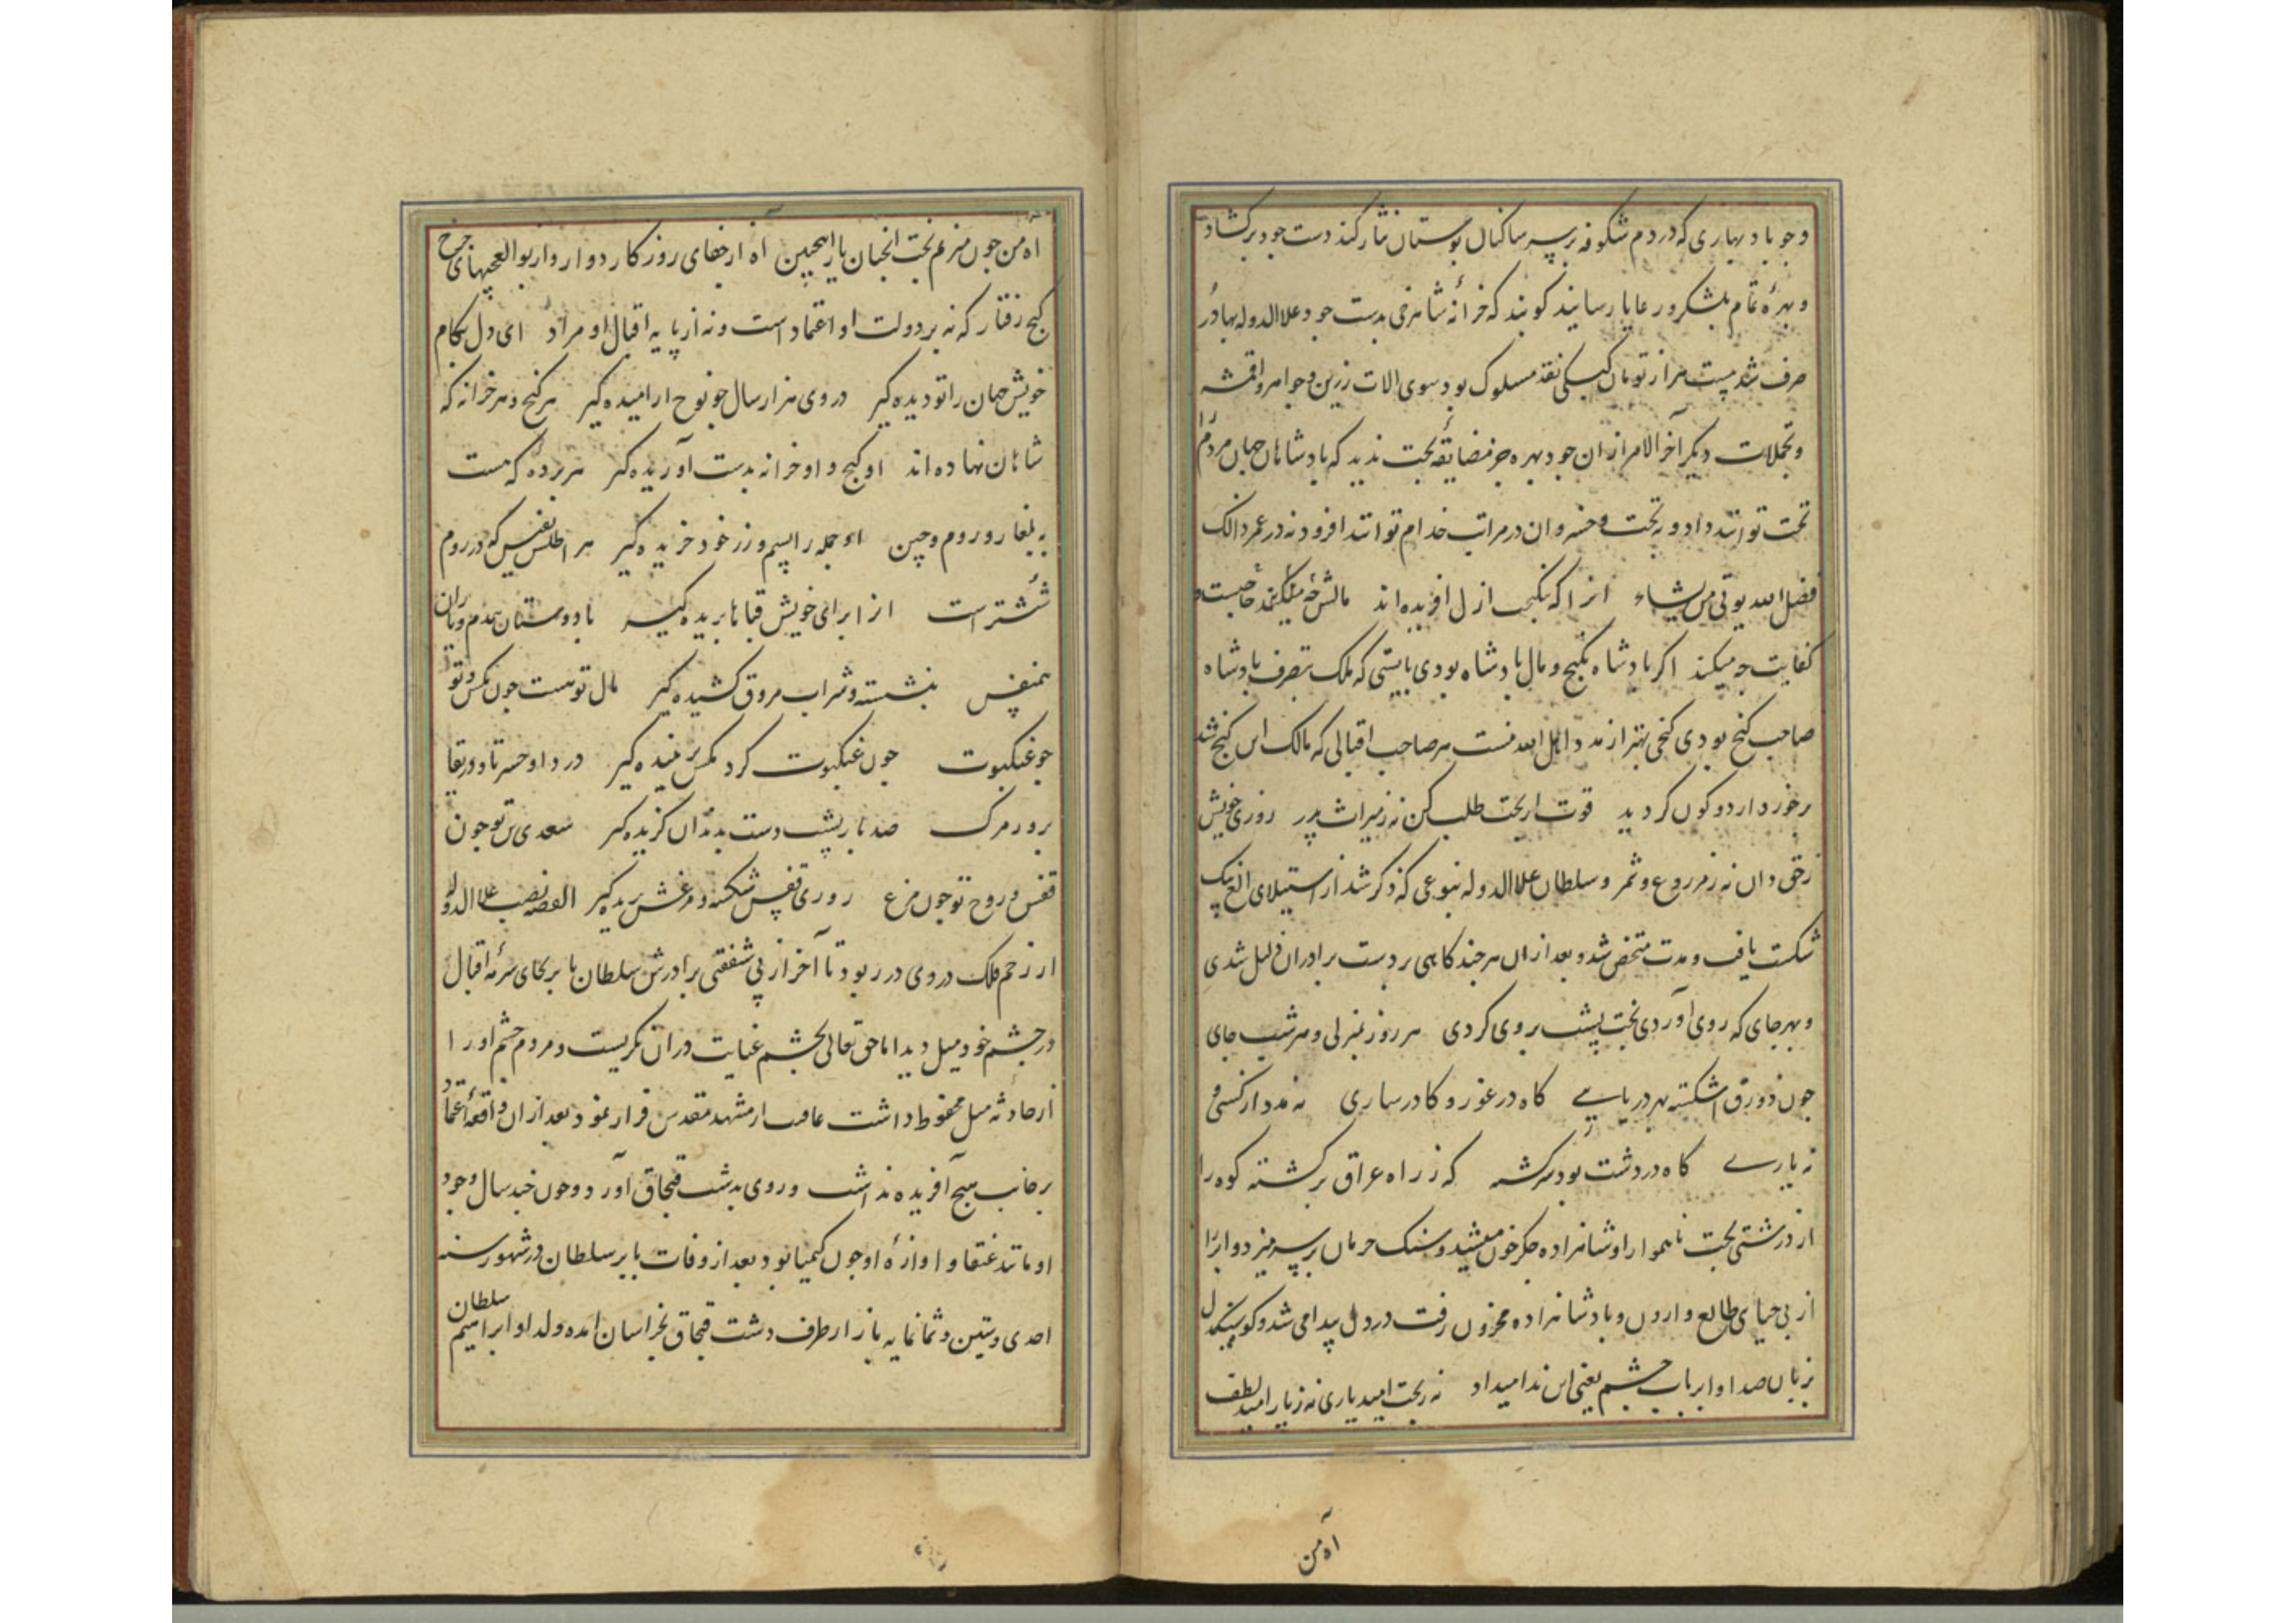 و جو باد بهاری که در دم شکوفه بر سر ساکنان بوستان نثار کند دست جود برکشاد
و بهرهٔ تمام بلشکر و رعایا رسانید کویند که خزانهٔ شاهرخی بدست جود علاالدوله بهادر
صرف شد بیست هزار تومان نقد مسلوک بود سوی الات زرین و جواهر و اقمشه
و تجملات دیکر آخر الامر از ان جود بهره جز مضایقهٔ بخت ندید که بادشاهان جهان مردم را
تخت توانند داد و نه بخت و خسروان در مراتب خدام توانند افزود نه در عمر ذالک
فضل الله یوتی من یشاء انرا که نیکبخت ازل افریده اند مالش چه میکند
کفایت چه میکند اکر بادشاه بکنج و مال بادشاه بودی بایستی که ملک بتصرف بادشاه
صاحب کنج بودی کنجی بهتر از مدد اهل الله نیست هر صاحب اقبالی که مالک این کنج شد
برخوردار دو کون کردید قوت از بخت طلب کن نه ز میراث پدر روزی خویش
ز حق دان نه ز مزروع و ثمر و سلطان علاالدوله بنوعی که ذکر شد از استیلای الغ بیک
شکست یافت و مدت متخفی شد و بعد از ان هر چند کاهی بر دست برادران ذلیل شدی
و بهر جای که روی آوردی بخت پشت بروی کردی هر روز بمنزلی و هر شب جای
جون زورق اشکسته بهر دریایی کاه در غور و کا در ساری نه مدد از کسی و
نه یاری کاه در دشت بود سرکشته که ز راه عراق برکشته کوه را
از درشتی بخت ناهموار او شاهزاده جکر خون میشد و سنک حرمان بر سر میزد و ابر را
از بی حیای طالع وارون و بادشاهزاده محزون رفت در دل پیدا می شد و کوه سنکدل
بزبان صدا و ابر باب چشم یعنی این ندا میداد نه ز بخت امید یاری نه ز یار امید لطف
آه من
آه من جون منزغم بخت انجنان یار اینجنین آه از جفای روزکار دوار و از بوالعجبیهای چرخ
کج رفتار که نه بر دولت او اعتماد است و نه از پایه اقبال او مراد ای دل بکام
خویش جهان را تو دیده کیر در وی هزار سال جو نوح ارامیده کیر هر کنج و هر خزانه که
شاهان نهاده اند او کنج و او خزانه بدست آوریده کیر هر برده که هست
به بلغار و روم و چین او جمله را بسیم و زر خود خریده کیر هر اطلس نفیس که در روم
ششتر است از ابرای خویش قباها بریده کیر با دوستان همدم و یاران
همنفس بنشسته و شراب مروق کشیده کیر مال تو هست جون مکس و تو
جو عنکبوت جون عنکبوت کرد مکس بر تنیده کیر دردا و حسرتا و دریغا
بروز مرک صد بار پشت دست بدندان کزیده کیر سعدی تن تو جون
قفس و روح تو جون مرغ روزی قفس شکسته و مرغش پریده کیر القصه نصیب علاالدوله
از زخم فلک در وی درر بود تا آخر از بی شفقتی برادرش سلطان بابر بجای سرمهٔ اقبال
در چشم خود میل دید اما حق تعالی بچشم عنایت در ان نکریست و مردم چشم او را
از حادثه میل محفوظ داشت عاقبت از مشهد مقدس فرار نمود بعد از ان واقعه اعتماد
بر جانب هیچ آفریده نداشت و روی بدشت قبجاق آورد و جون چند سال وجود
او مانند عنقا و اوازهٔ او جون کیمیا بود بعد از وفات بابر سلطان در شهور سنه
احدی و ستین و ثمانمایه باز از طرف دشت قبجاق بخراسان امده ولد او ابراهیم سلطان